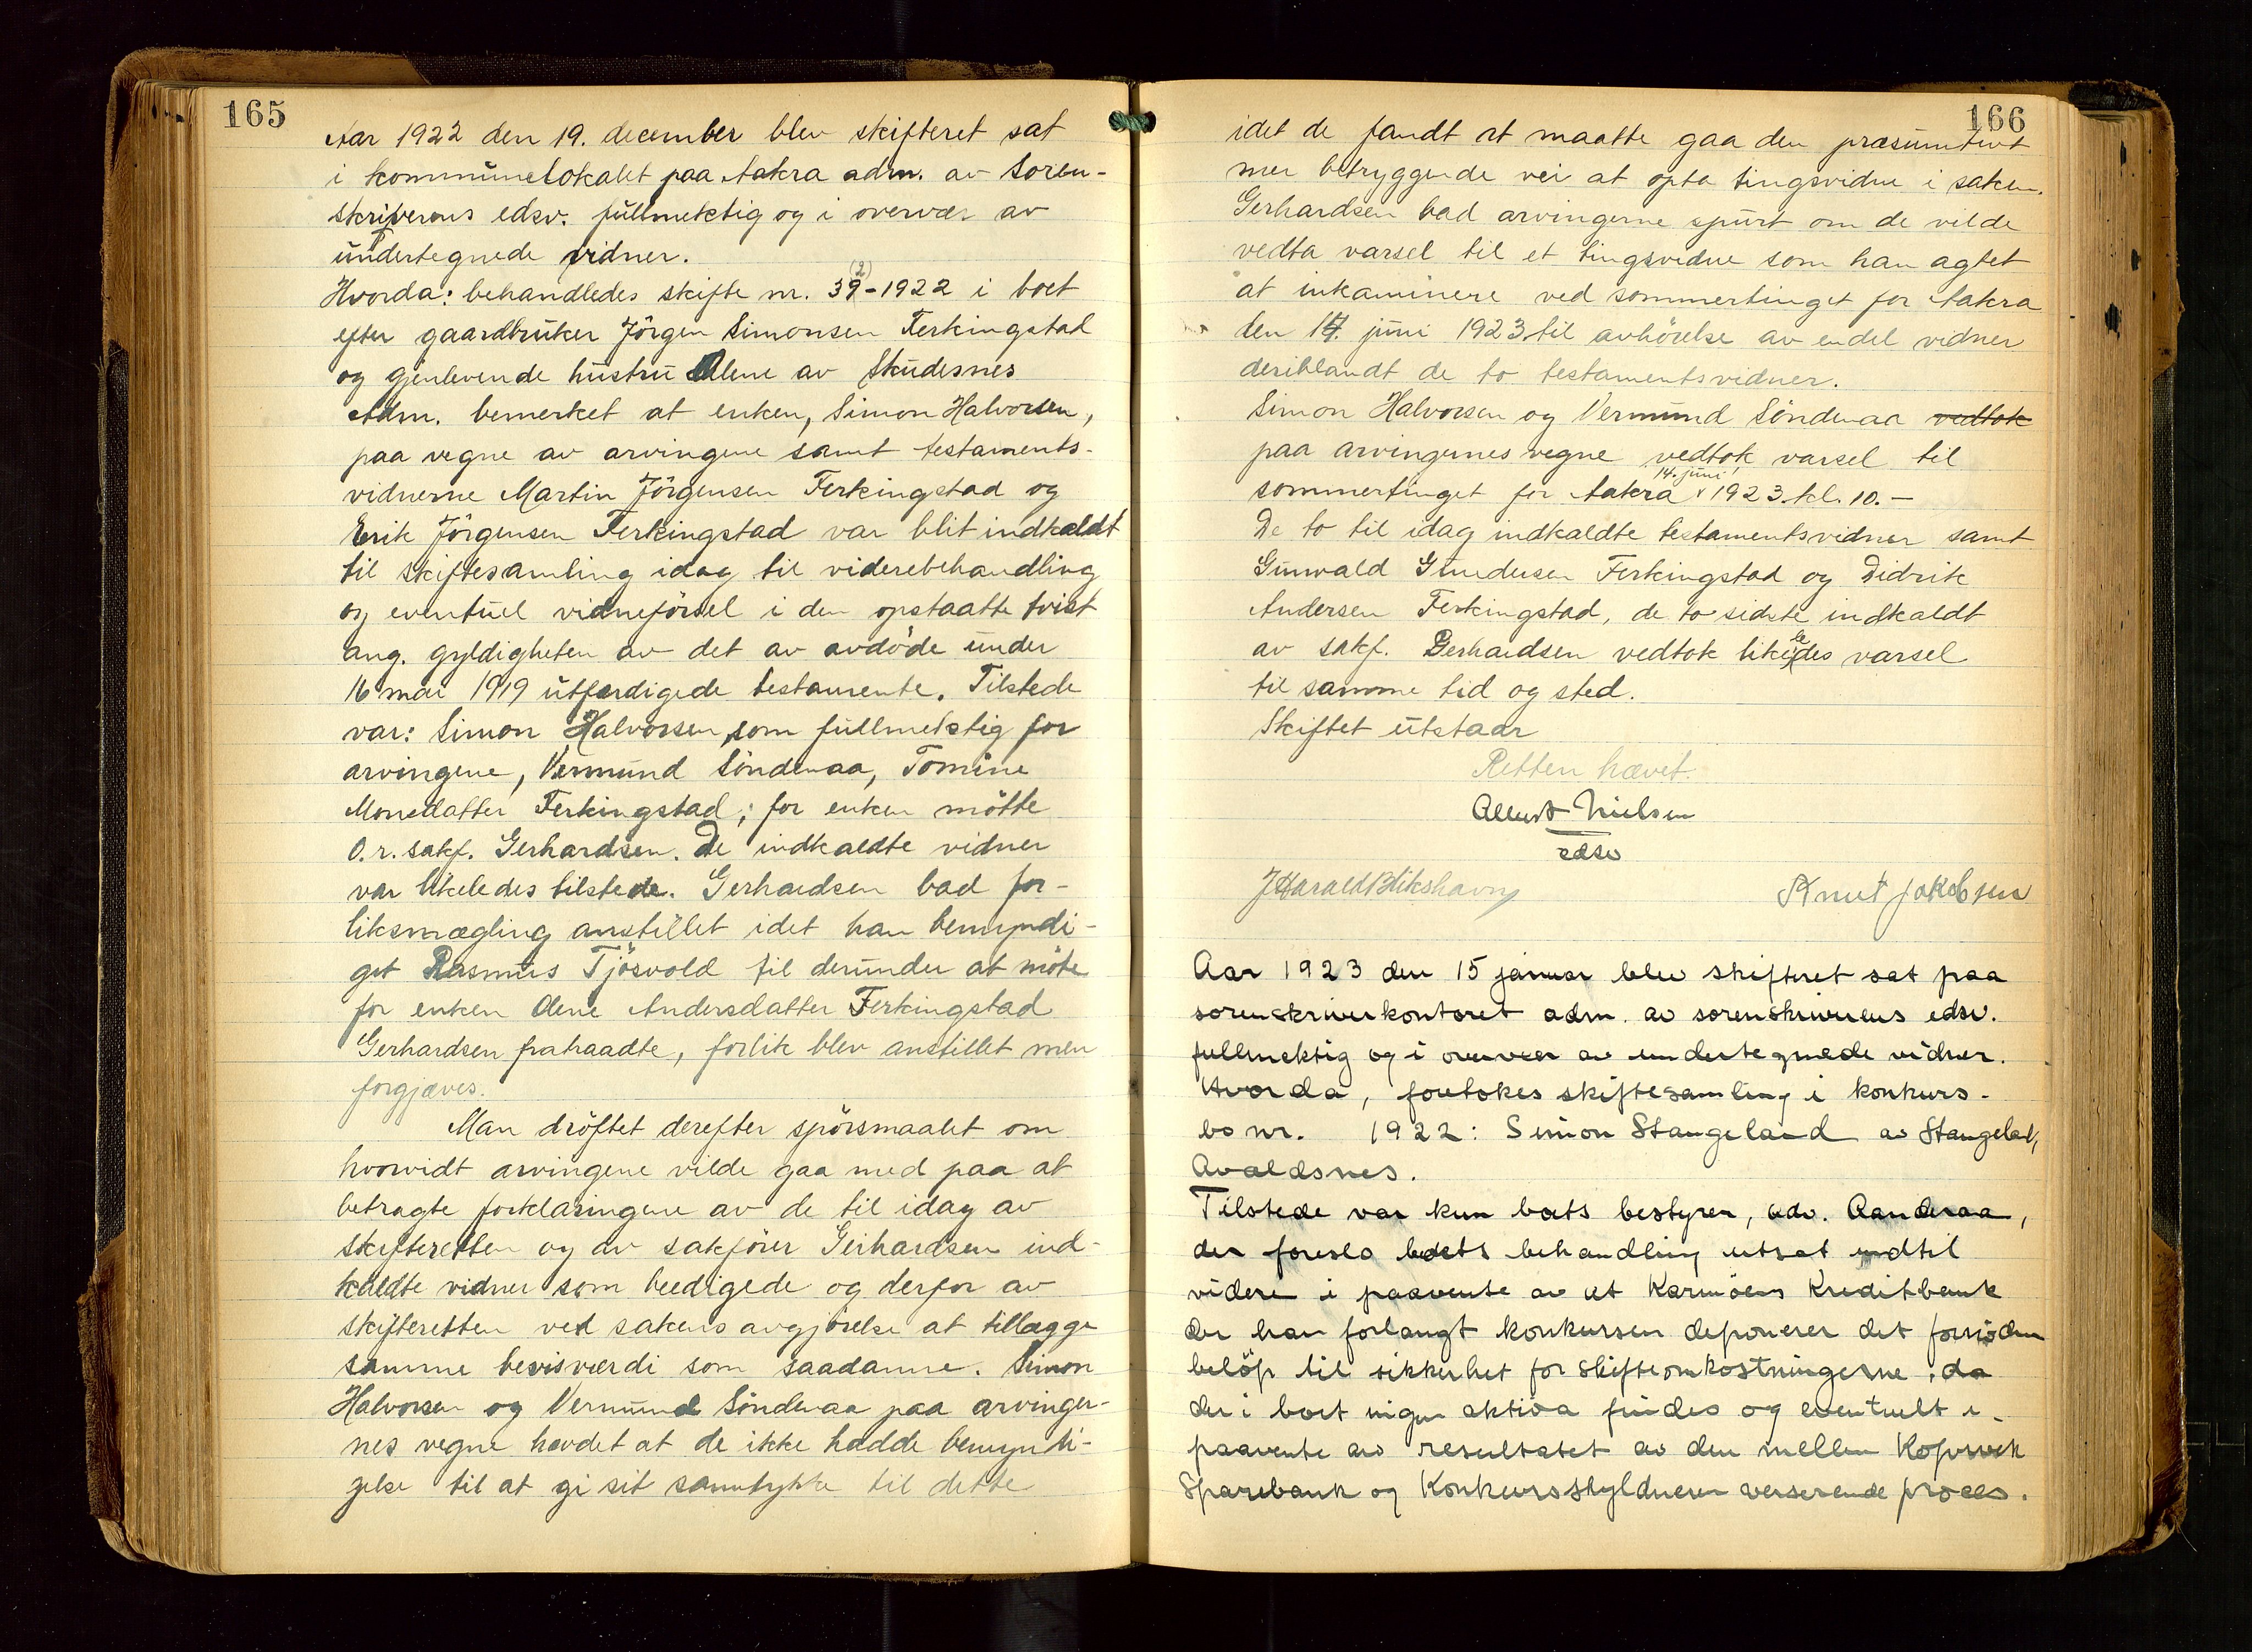 165
Aar 1922 den 19. december blev skifteret sat
i kommunelokalet paa Aakra adm. av soren-
skriverens edsv. fullmektig og i overvær av
undertegnede vidner.
Hvorda: behandledes skifte nr. 39(2)-1922 i boet
efter gaardbruker Jörgen Simonsen Ferkingstad
og gjenlevende hustru Olene av Skudesnes
Adm. bemerket at enken, Simon Halvorsen,
paa vegne av arvingene samt testaments-
vidnerne Martin Jörgensen Ferkingstad og
Erik Jörgensen Ferkingstad var blit indkaldt
til skiftesamling idag til viderebehandling
og eventuel vidneförsel i den opstaatte tvist
ang. gyldigheten av det av avdöde under
16 mai 1919 utfærdigede testamente. Tilstede
var: Simon Halvorsen, som fullmektig for
arvingene, Vermund Söndenaa, Tomine
Monsdatter Ferkingstad; for enken mötte
O.r. sakf. Gerhardsen. De indkaldte vidner
var likeledes tilstede. Gerhardsen bad for-
liksmægling anstillet idet han bemyndi-
get Rasmus Tjösvold til derunder at möte
for enken Olene Andersdatter Ferkingstad
Gerhardsen fratraadte, forlik blev anstillet men
forgjæves.
Man dröftet derefter spörsmaalet om
hvorvidt arvingene vilde gaa med paa at
betragte forklaringene av de til idag av
skifteretten og av sakförer Gerhardsen ind-
kaldte vidner som beedigede og derfor av
skifteretten ved sakens avgjörelse at tillægge
samme bevisværdi som saadanne. Simon
Halvorsen og Vermund Söndenaa paa arvinger-
nes vegne hævdet at de ikke hadde bemyndi-
gelse til at gi sit samtykke til dette
166
idet de fandt at maatte gaa den præsumtivt
mer betryggende vei at opta tingsvidne i saken.
Gerhardsen bad arvingerne spurt om de vilde
vedta varsel til et tingsvidne som han agtet
at inkaminere ved sommertinget for Aakra
den 14. juni 1923 til avhörelse av endel vidner
deriblandt de to testamentsvidner.
Simon Halvorsen og Vermund Söndenaa vedtok
paa arvingernes vegne vedtok varsel til
14. juni
sommertinget for Aakra v 1923 kl. 10.-
De to til idag indkaldte testamentsvidner samt
Gunvald Gundersen Ferkingstad og Didrik
Andersen Ferkingstad, de to sidste indkaldt
av sakf. Gerhardsen vedtok likeledes varsel
til samme tid og sted.
Skiftet utstaar
Retten hævet.
Albert Nielsen
edsv
J Harald Blikshavn
Knut Jakobsen
Aar 1923 den 15 januar blev skifteret sat paa
sorenskriverkontoret adm. av sorenskriverens edsv.
fullmektig og i overvær av undertegnede vidner.
Hvorda, foretokes skiftesamling i konkurs-
bo nr. 1922: Simon Stangeland av Stangeland,
Avaldsnes.
Tilstede var kun boets bestyrer, adv. Aanderaa,
der foreslo boets behandling utsat indtil
videre i paavente av at Karmöens Kreditbank
der har forlangt konkursen deponerer det fornödne
belöp til sikkerhet for skifteomkostningerne, da
der i boet ingen aktiva findes og eventuelt i
paavente av resultatet av den mellem Kopervik
Sparebank og Konkursskyldneren verserende proces.